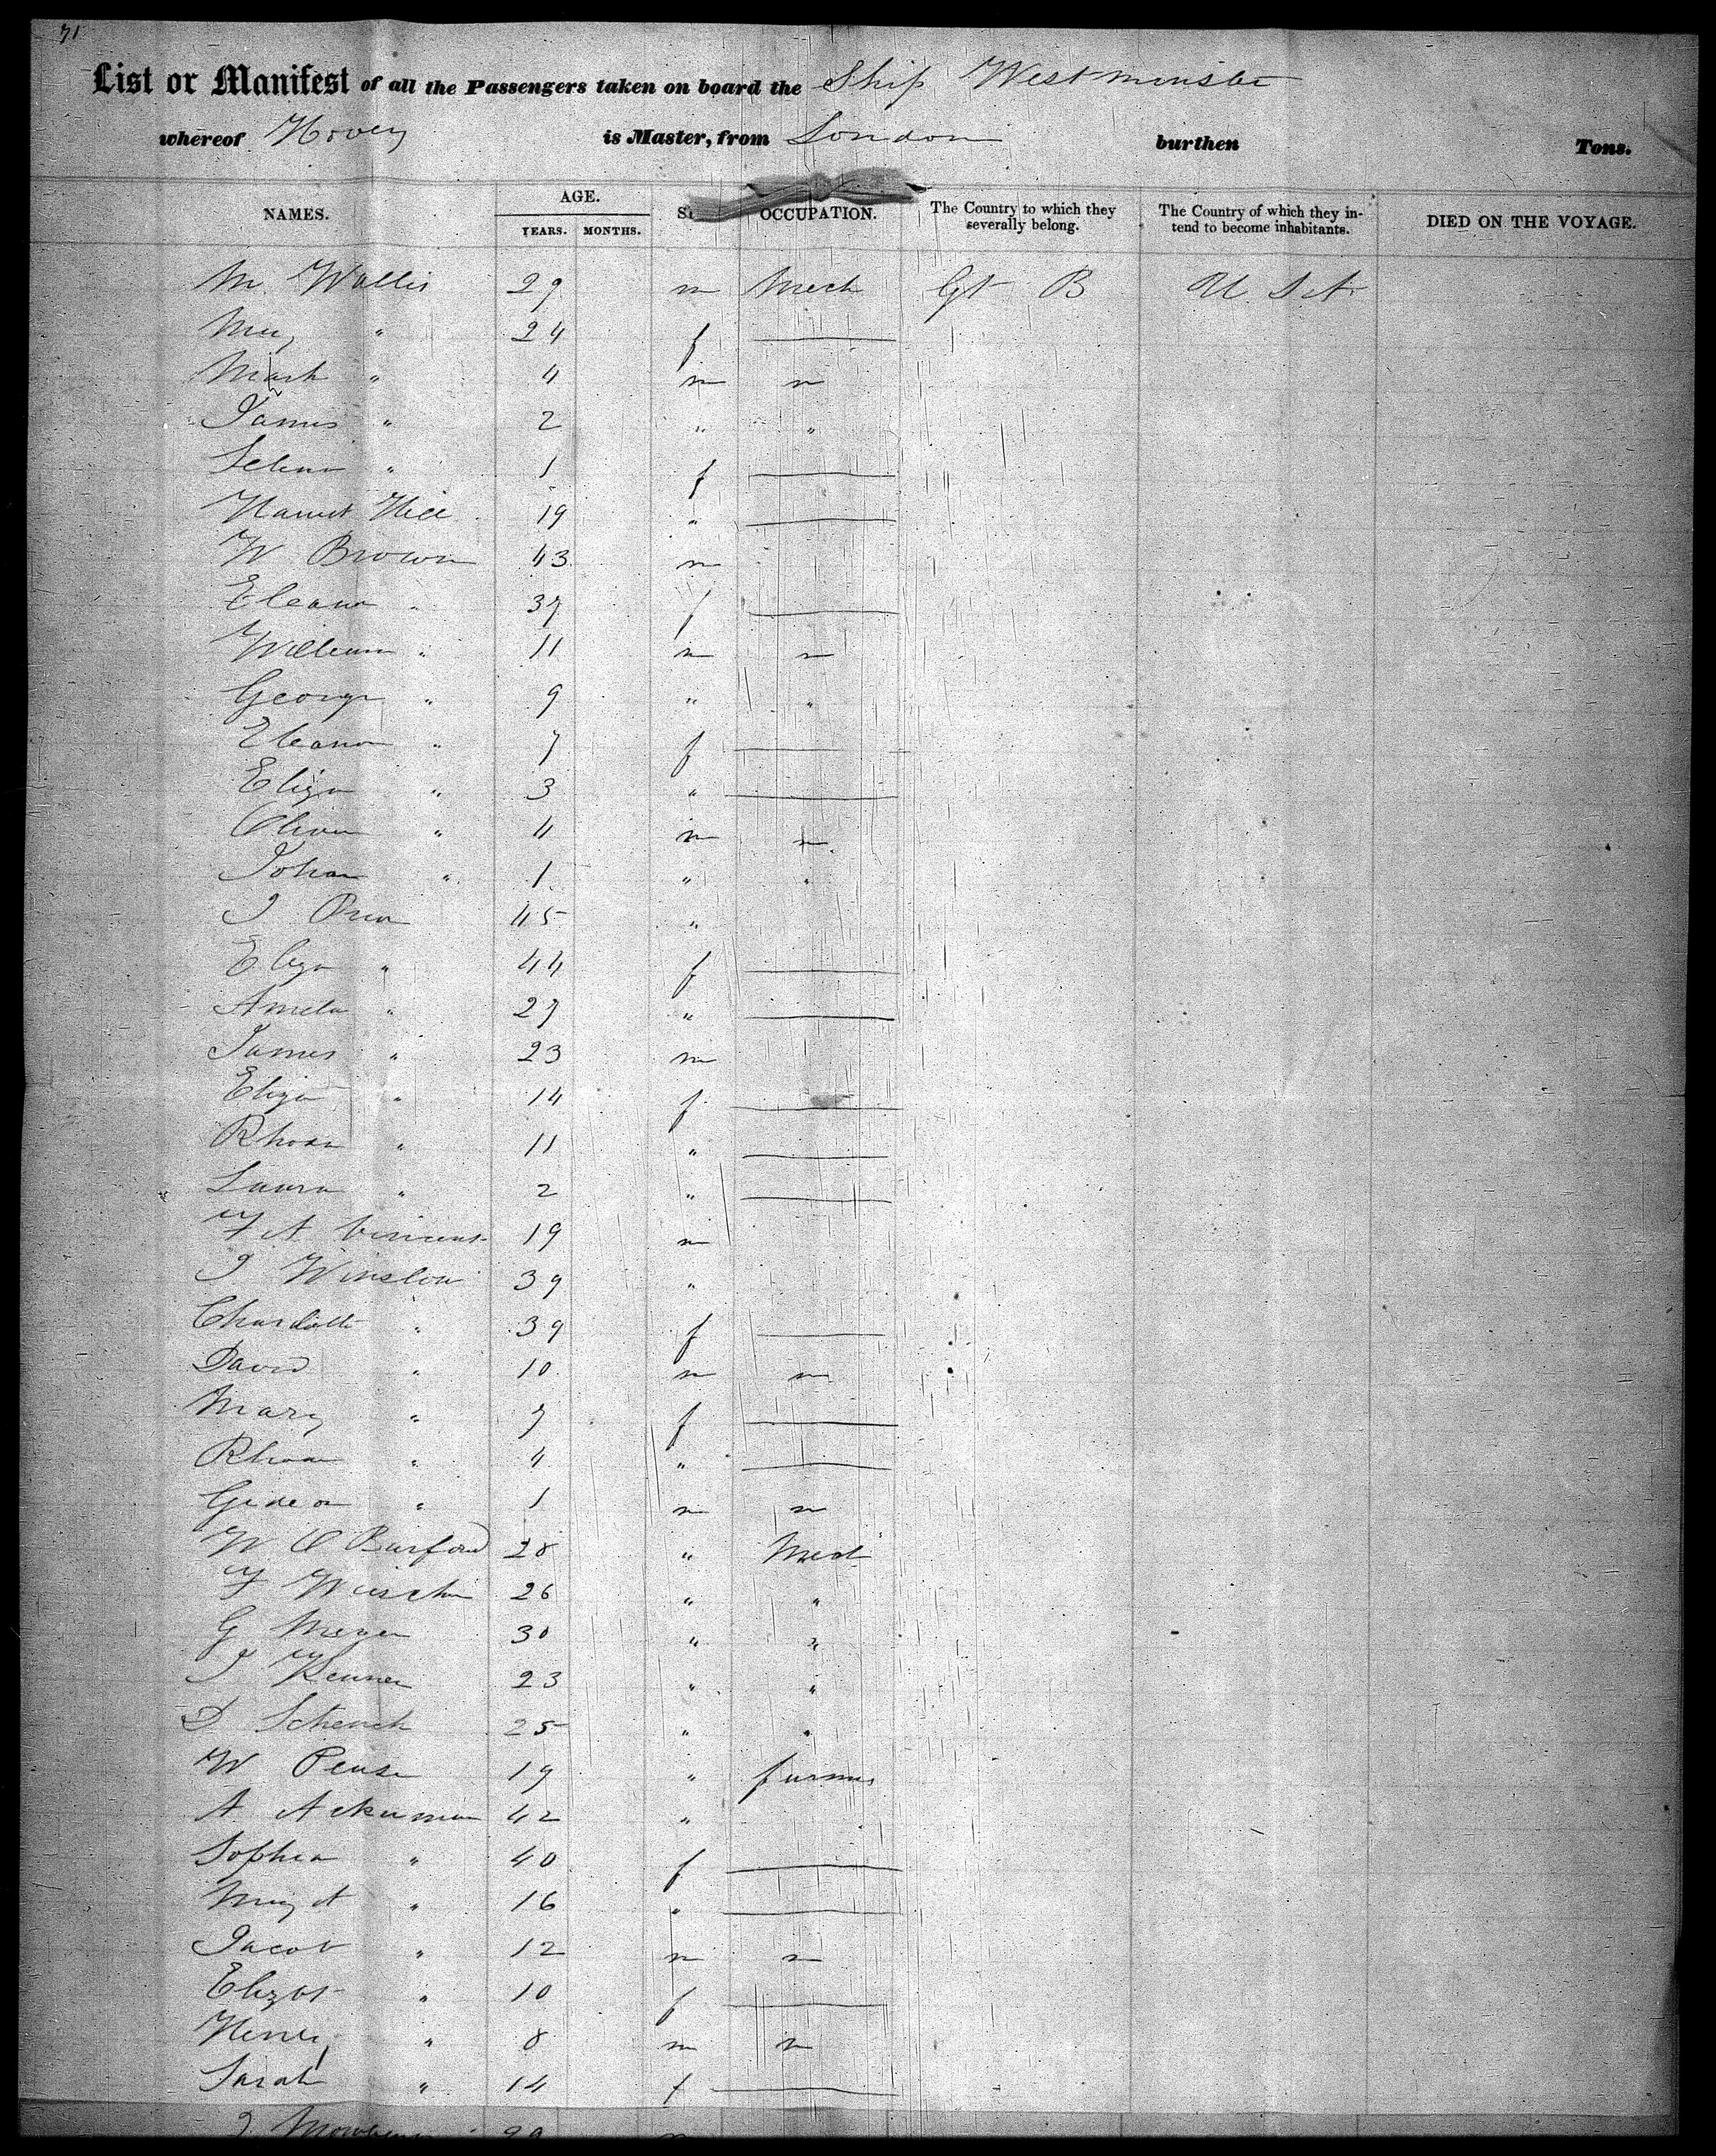 71
List or Manifest of all the Passengers taken on board the Ship Westminster
whereof Hovey is Master, from London burthen Tons.
NAMES. AGE. YEARS. MONTHS. OCCUPATION. The Country to which they severally belong. The Country of which they intend to become inhabitants. DIED ON THE VOYAGE.
M Wallis 29 m Mech Gt B U S A
" 24 f
Mark " 4 m
James " 2 " "
Selina " 1 f
Harriet Hill 19 "
W Brown 43 m
Eleanor " 37 f
William " 11 m
George " 9 " "
Eleanor " 7 f
Eliza " 3 "
Oliver " 4 m
John " 1 " "
J 45 "
Eliza " 44 f
Amelia " 27 "
James " 23 m
Eliza " 14 f
Rhoda " 11 "
Laura " 2 "
A Vincent 19 m
J Winslow 39 "
Charlotte " 39 f
David " 10 m
Mary " 7 f
Rhoda " 4 "
Gideon " 1 m
W O Burford 28 " Mech
26 " "
G Meyer 30 " "
23 " "
D Schenck 25 " "
W 19 " farmer
A Ackerman 42 "
Sophia " 40 f
" 16 "
Jacob " 12 m
Elizbt " 10 f
Henry " 8 m
Sarah " 14 f
J